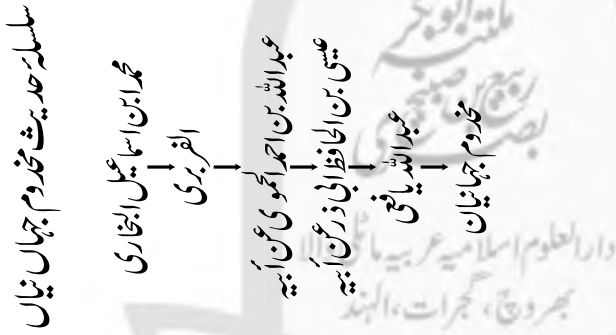 سلسلۂ حدیث مخدوم جہاں نیاں
محمد ابن اسماعیل البخاری
الفربری
عبداللہ بن احمد الحموی عن أبیہ
عیسیٰ بن الحافظ ابی ذر عن أبیہ
عبداللہ یافعی
مخدوم جہانیان
مکتبہ ابوبکر
ربیع بن صبیح
بصری
دارالعلوم اسلامیہ عربیہ ماٹلی والا
بھروچ، گجرات، الہند